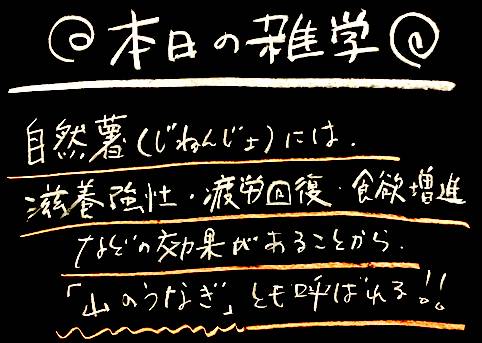 本日の雑学
自然薯(じねんじょ)には、
滋養強性・疲労回復・食欲増進
などの効果があることから、
「山のうなぎ」とも呼ばれる!!